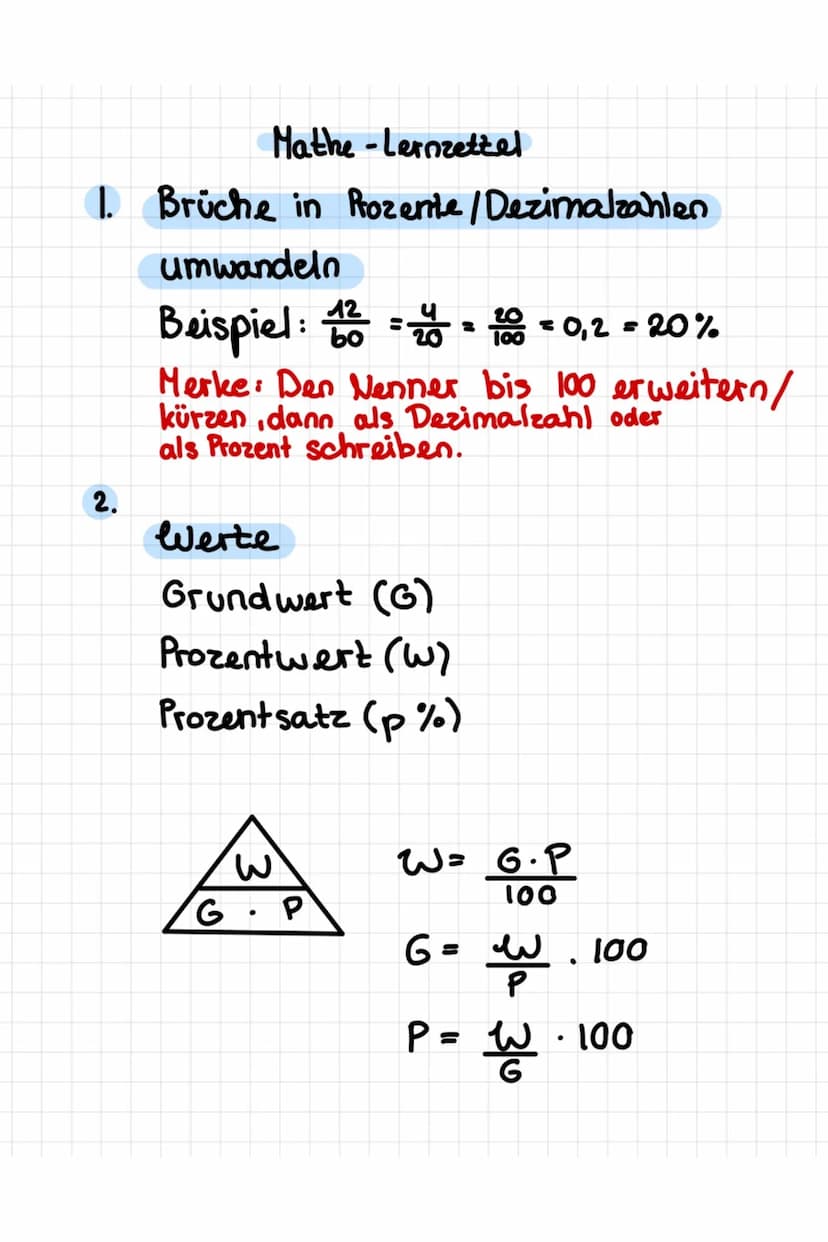 Mathe-Lernzettel
1. Brüche in Prozente/Dezimalzahlen
umwandeln
Beispiel: 12/60 = 4/20 = 20/100 = 0,2 = 20%
Merke: Den Nenner bis 100 erweitern/
kürzen, dann als Dezimalzahl oder
als Prozent schreiben.
2.
Werte
Grundwert (G)
Prozentwert (W)
Prozentsatz (p%)
W
G · P
W = G·P/100
G = W/P · 100
P = W/G · 100